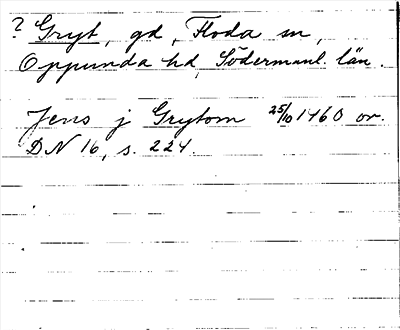 ? Gryt, gd, Floda sn,
Oppunda hd, Södermanl. län.
Jens j Grytom 25/10 1460 or.
DN 16, s. 224.